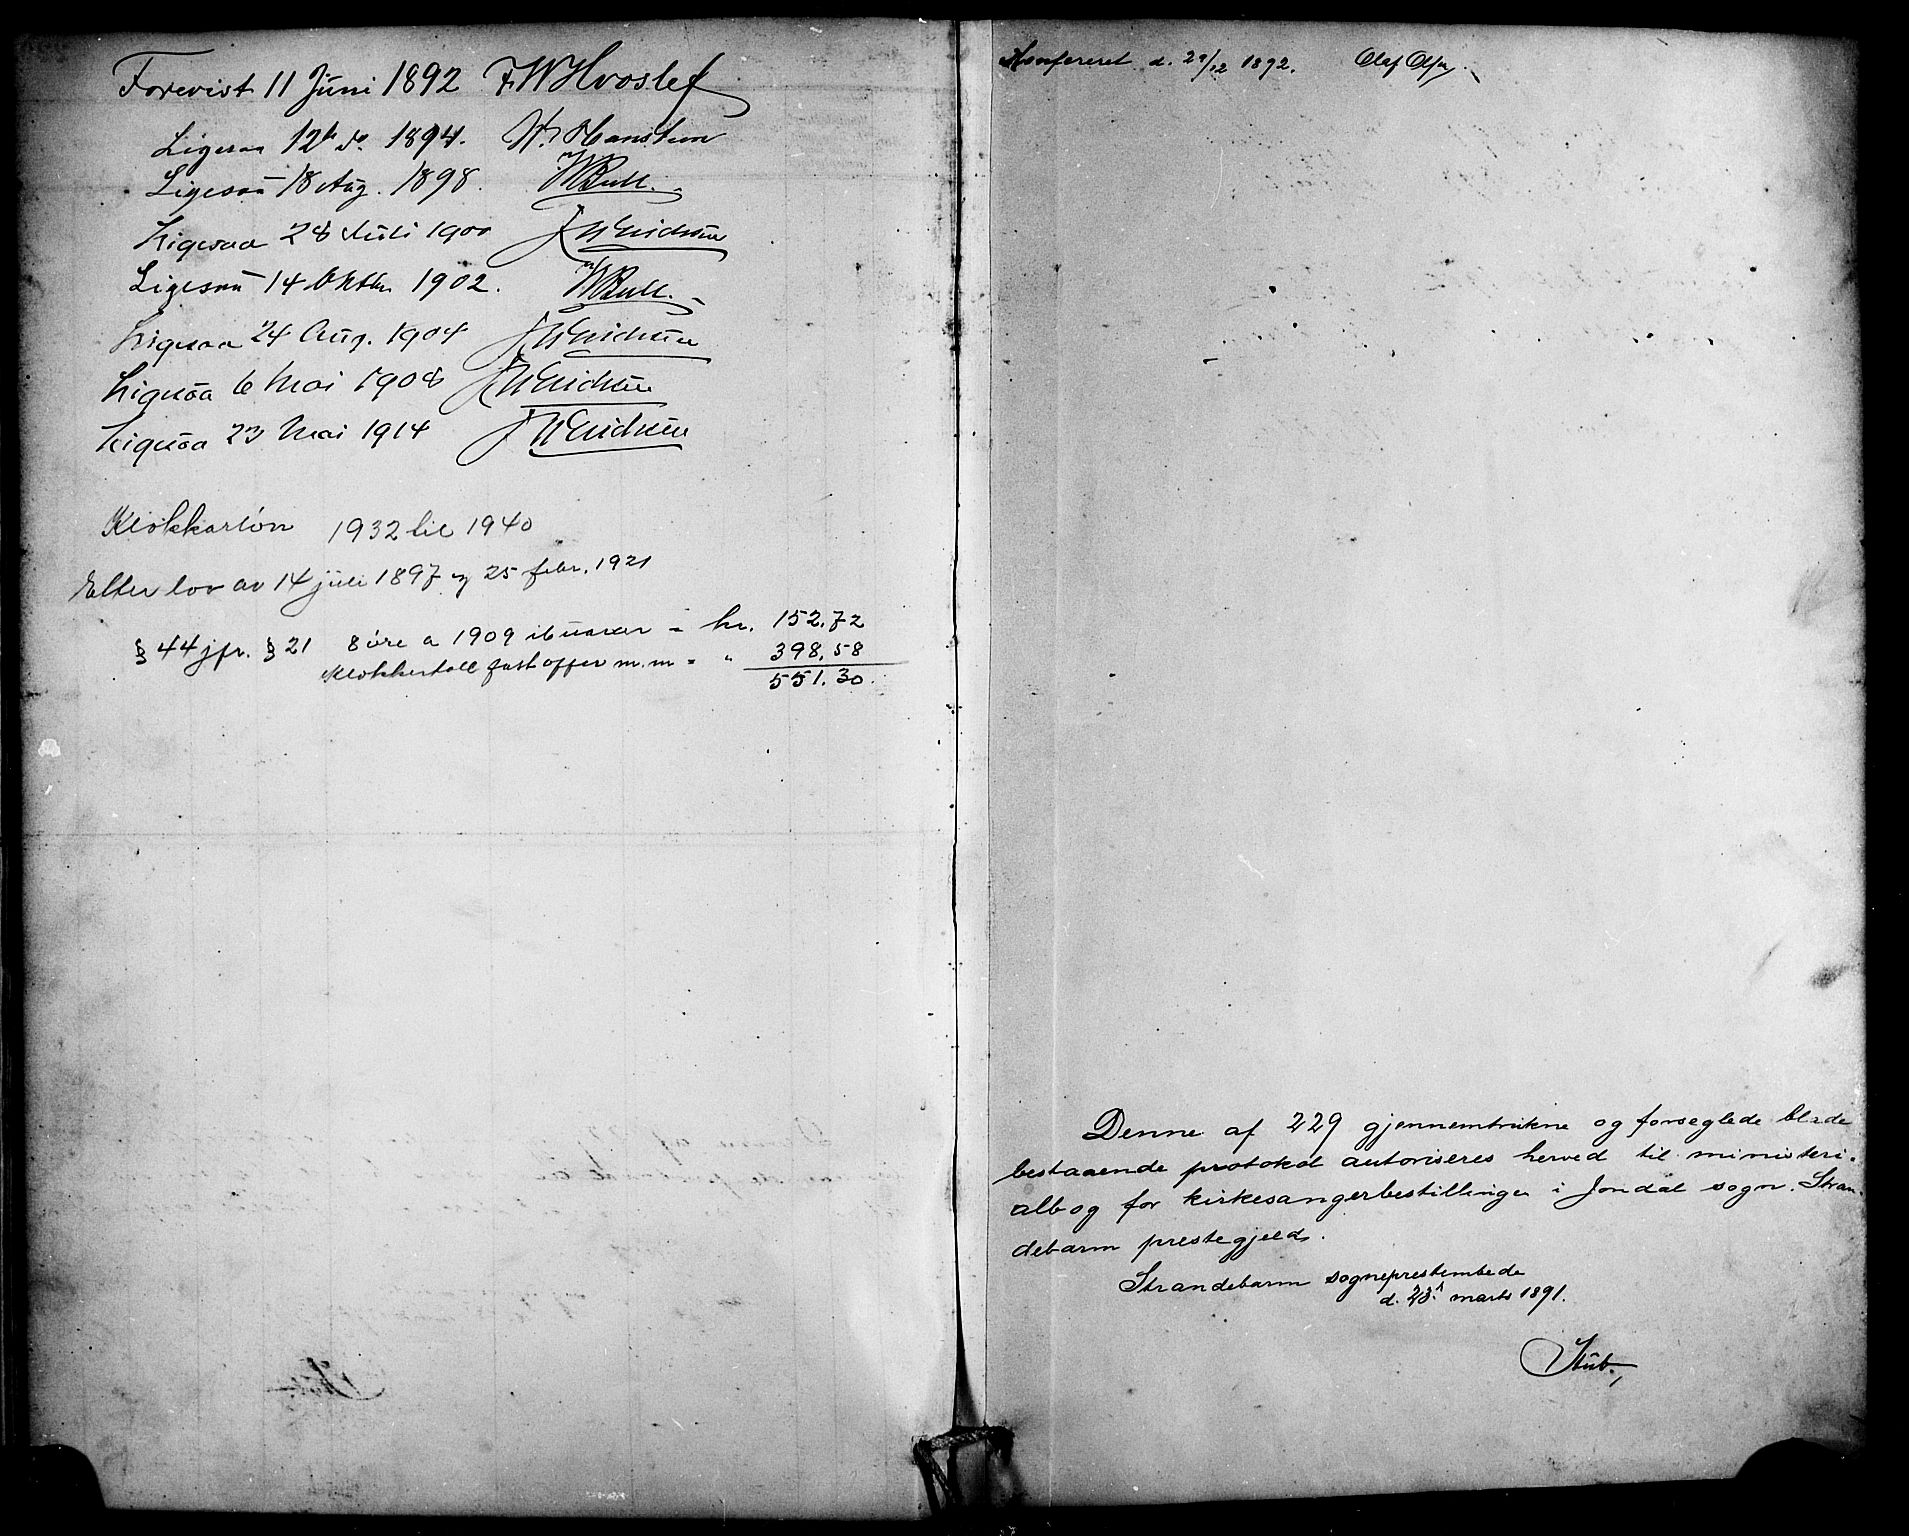 Forevist 11 Juni 1892 F W Hvoslef
Ligesaa 12te do. 1894. W. Hansteen
Ligesaa 18 Aug. 1898. W Bull.
Ligesaa 28 Juli 1900 J W Eriksen
Ligesaa 14 Oktbr 1902. W Bull.
Ligesaa 24 Aug. 1904 J W Eriksen
Ligesaa 6 Mai 1908 J W Eriksen
Ligesaa 23 Mai 1914 J W Eriksen
Klokkarløn 1932 til 1940
Etter lov av 14 juli 1897 og 25 febr. 1921
§ 44 jfr. § 21 8 øre a 1909 ibuarar = kr. 152,72
Klokkertoll fast offer m.m = " 398,58
551,30.
Konfereret d. /12 1892. Olaf
Denne af 229 gjennemtrukne og forseglede blade
bestaaende protokol autoriseres herved til ministeri-
albog for kirkesangerbestillingen i Jondal sogn. Stran-
debarm prestegjeld.
Strandebarm sogneprestembede
d. 23. marts 1891.
Stub.